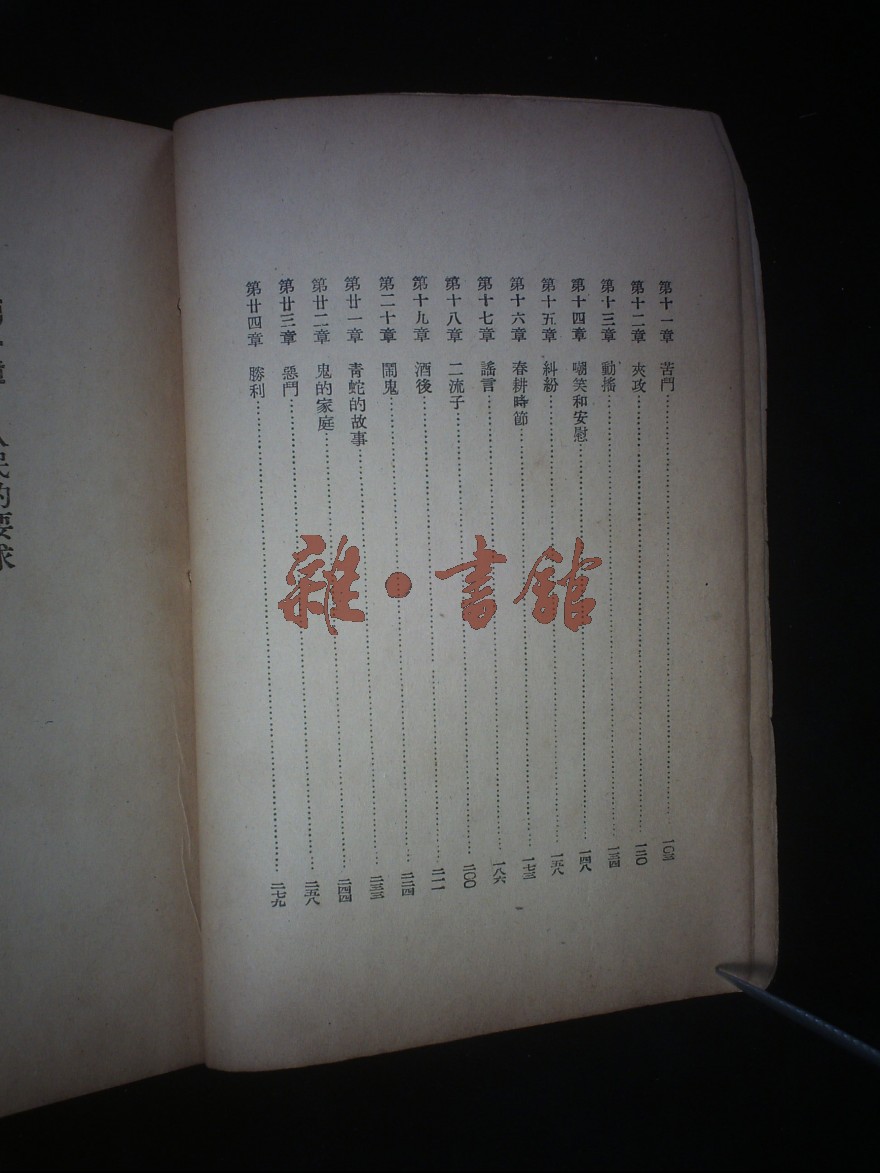 第十一章 苦鬥……一〇三
第十二章 夾攻……一二〇
第十三章 動搖……一三四
第十四章 嘲笑和安慰……一四八
第十五章 糾紛……一五八
第十六章 春耕時節……一七三
第十七章 謠言……一八六
第十八章 二流子……二〇〇
第十九章 酒後……二一一
第二十章 鬧鬼……二二四
第廿一章 青蛇的故事……二三三
第廿二章 鬼的家庭……二四四
第廿三章 惡鬥……二五八
第廿四章 勝利……二七九
人民的要求
雜·書館